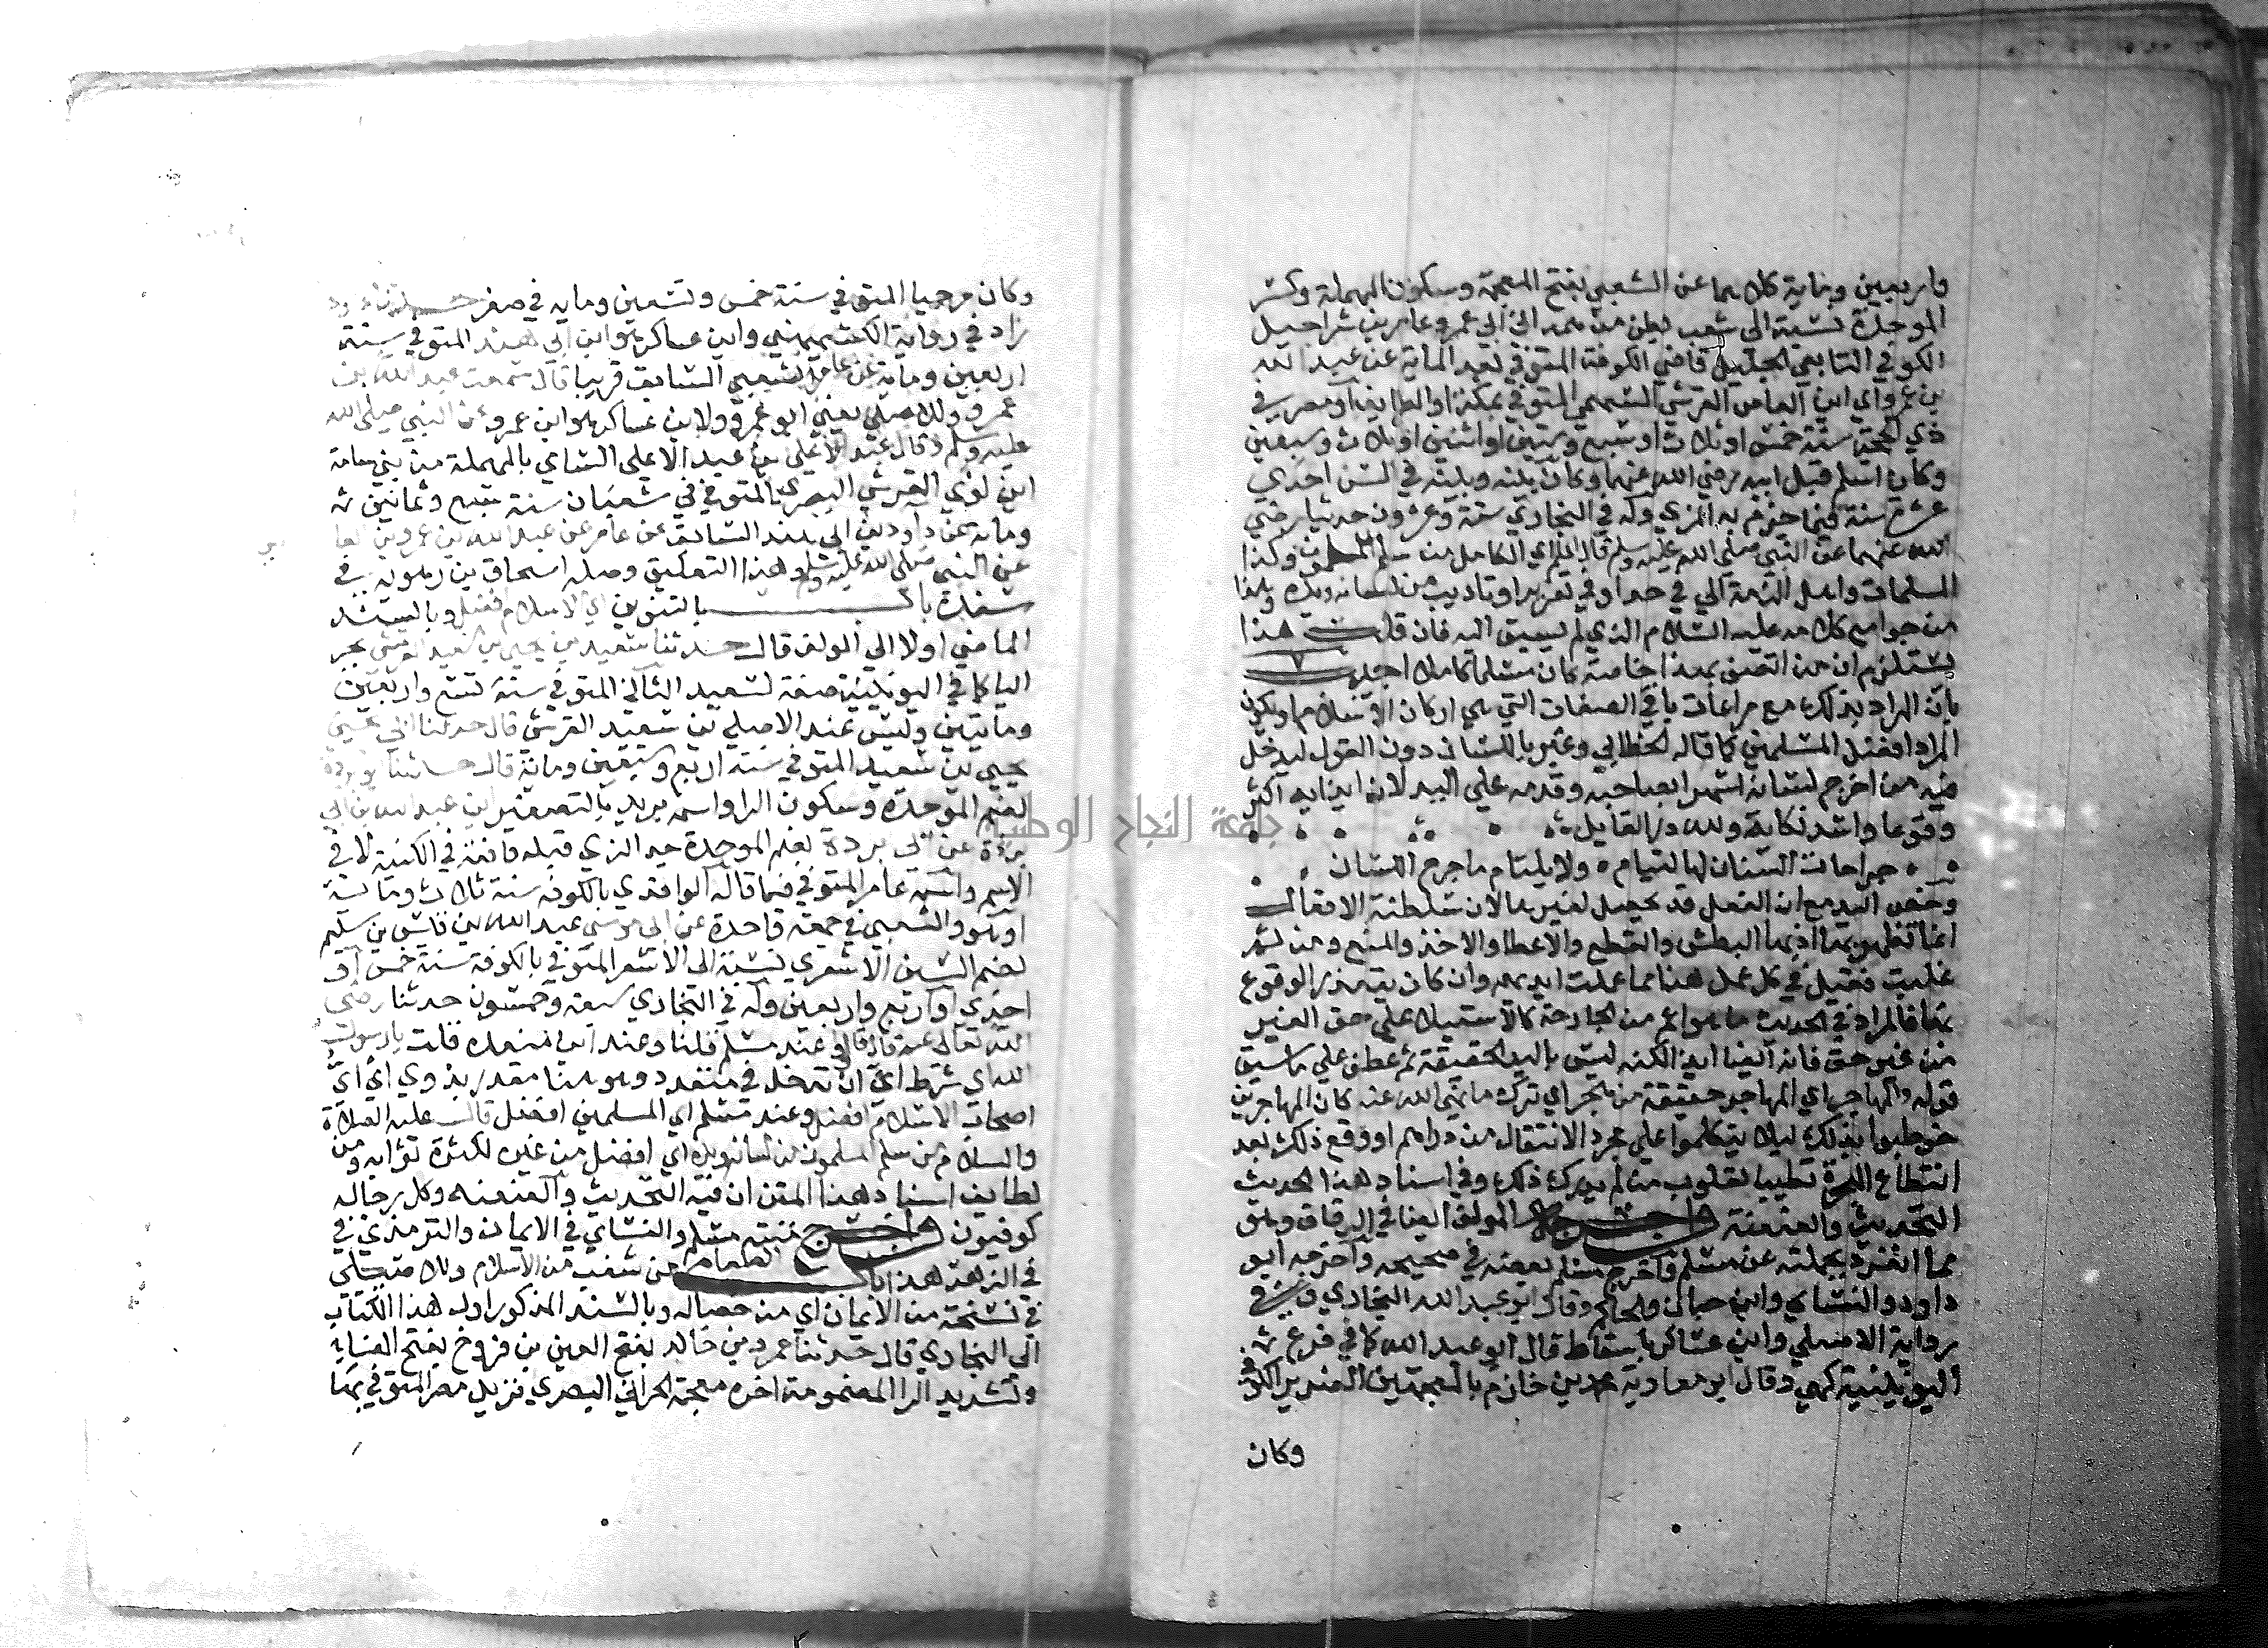 واربعين وماية كلاهما عن الشعبي بفتح المعجمة وسكون المهملة وكسر
الموحدة نسبة الى شعب بطن من همدان ابي عمرو عامر بن شراحيل
الكوفي التابعي الجليل قاضي الكوفة المتوفي بعد الماية عن عبد الله
بن عمرو اي ابن العاص القرشي السهمي المتوفي بمكة او الطايف او مصر في
ذي الحجة سنة خمس او ثلاث او سبع وستين او اثنتين او ثلاث وسبعين
وكان اسلم قبل ابيه رضي الله عنهما وكان بينه وبينه في السن احدي
عشرة سنة فيما جزم به المزي وله في البخاري ستة وعشرون حديثا رضي
الله عنهما عن النبي صلى الله عليه وسلم قال المسلم اي الكامل من سلم المسلمون وكذا
المسلمات واهل الذمة الي في حد او في تعزير او تاديب من لسانه ويده وهذا
من جوامع كلامه عليه السلام الذي لم يسبق اليه فان قلت هذا
يستلزم ان من اتصف بهذا خاصة كان مسلما كاملا اجيب
بان المراد بذلك مع مراعات باقي الصفات التي هي اركان الاسلام او يكون
المراد افضل المسلمين كما قاله الخطابي وعبر باللسان دون القول ليدخل
فيه من اخرج لسانه استهزا بصاحبه وقدمه علي اليد لان ايذايه اكثر
وقوعا واشد نكاية ولله در القايل
جراحات السنان لها التيام ولا يلتام ما جرح اللسان
وخص اليد مع ان الفعل قد يحصل بغيرها لان سلطنة الافعال
انما تظهر بها اذ بها البطش والقطع والاعطا والاخذ والمنع ومن ثم
غلبت فقيل في كل عمل هذا مما عملت ايديهم وان كان يتعذر الوقوع
بها فالمراد في الحديث ما هو اعم من الجارحة كالاستيلا علي حق الغير
من غير حق فانه ايضا ايذا لكنه ليس باليد الحقيقة ثم عطف علي ما سبق
قوله والمهاجر اي المهاجر حقيقة من هجر اي ترك ما نهي الله عنه كان المهاجرين
خوطبوا بذلك ليلا يتكلموا علي مجرد الانتقال من دارهم او وقع ذلك بعد
انقطاع الهجرة تطييبا لقلوب من لم يدرك ذلك وفي اسناد هذا الحديث
التحديث والعنعنة واخرجه المولف ايضا في الرقاق وهو
مما انفرد بجملته عن مسلم فاخرج مسلم بعضه في صحيحه واخرجه ابو
داود والنسائي وابن حبان والحاكم وقال ابو عبد الله البخاري وفي
رواية الاصيلي وابن عساكر باسقاط قال ابو عبد الله كما في فرع
اليونينية كهي وقال ابو معاوية محمد بن خازم بالمعجمتين الضرير الكوفي
وكان
وكان مرجيا المتوفي في سنة خمس وتسعين وماية في صفر حدثنا داود
زاد في رواية الكشميهني وابن عساكر هو ابن ابي هند المتوفي سنة
اربعين وماية عن عامر الشعبي السابق قريبا قال سمعت عبد الله بن
عمرو وللاصيلي يعني ابن عمرو ولابن عساكر هو ابن عمرو عن النبي صلى الله
عليه وسلم وقال عبد الاعلى بن عبد الاعلي السامي بالمهملة من بني سامة
ابن لوي القرشي البصري المتوفي في شعبان سنة تسع وثمانين
وماية عن داود بن ابي هند السابق عن عامر عن عبد الله بن عمرو بن العا
عن النبي صلى الله عليه وسلم وهذا التعليق وصله اسحاق بن راهويه في
مسنده باب بالتنوين اي الاسلام افضل وبالسند
الماضي اولا الي المولف قال حدثنا سعيد بن يحيى بن سعيد القرشي بجر
اليا كما في اليونينية صفة لسعيد الثاني المتوفي سنة تسع واربعين
ومايتين وليس عند الاصيلي بن سعيد القرشي قال حدثنا ابي يحيي
يحيي بن سعيد المتوفي سنة اربع وتسعين وماية قال حدثنا ابو بردة
بضم الموحدة وسكون الرا واسمه بريد بالتصغير ابن عبد الله بن ابي
بردة عن ابي بردة بضم الموحدة جد الذي قبله فافقه في الكنية لا في
الاسم واسمه عامر المتوفي فيما قاله الواقدي بالكوفة سنة ثلاث وماية
او هو والشعبي في جمعة واحدة عن ابي موسي عبد الله بن قيس بن سليم
بضم السين الاشعري نسبة الي الاشعر المتوفي بالكوفة سنة خمس او
احدي او اربع واربعين وله في البخاري سبعة وخمسون حديثا رضي
الله تعالى عنه قال قالوا وعند مسلم قلنا وعند ابن منده قلت يا رسول
الله اي شرط اي ان تدخل في متعدد وهو هنا مقدر بذوي اي اي
اصحاب الاسلام افضل وعند مسلم اي المسلمين افضل قال عليه الصلاة
والسلام من سلم المسلمون من لسانه ويده اي افضل من غيره لكثرة ثوابه ومن
لطايف اسناد هذا المتن ان فيه التحديث والعنعنه وكل رجاله
كوفيون واخرج متنه مسلم والنسائي في الايمان والترمذي في
في الزهد هذا باب اطعام الطعام من شعب من الاسلام وللاصيلي
في نسخة من الايمان اي من خصاله وبالسند المذكور اول هذا الكتاب
الي البخاري قال حدثنا عمرو بن خالد بفتح العين بن فروخ بفتح الفا
وتشديد الرا المضمومة اخره معجمة الحراني البصري نزيل مصر المتوفي بها
جامعة النجاح الوطنية